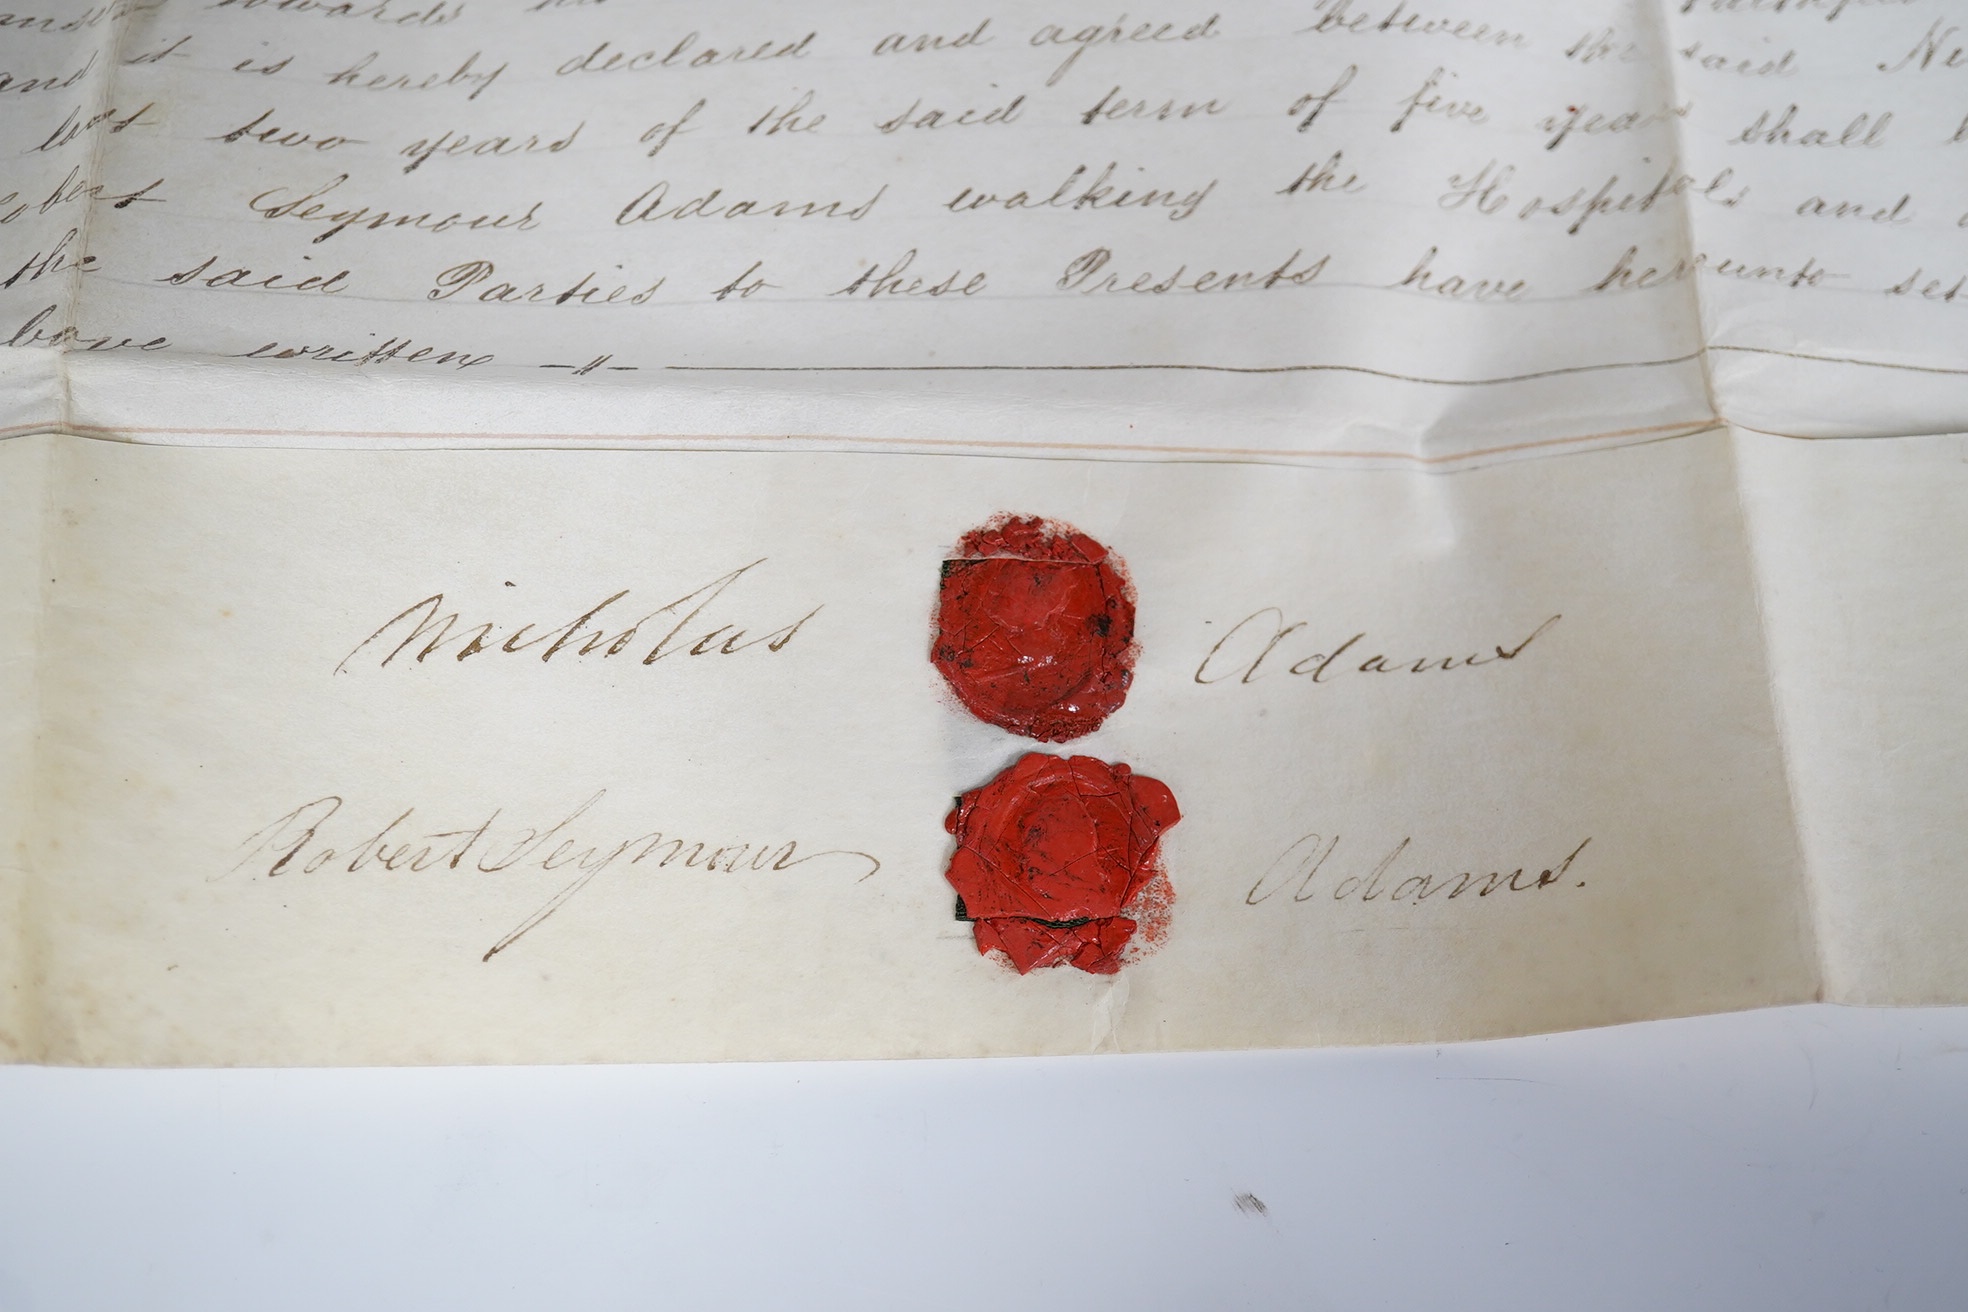 towards his
and it is hereby declared and agreed between the said Ni
last two years of the said term of five years shall b
obert Seymour Adams walking the Hospitals and a
the said Parties to these Presents have hereunto set
bove written
Nicholas Adams
Robert Seymour Adams.